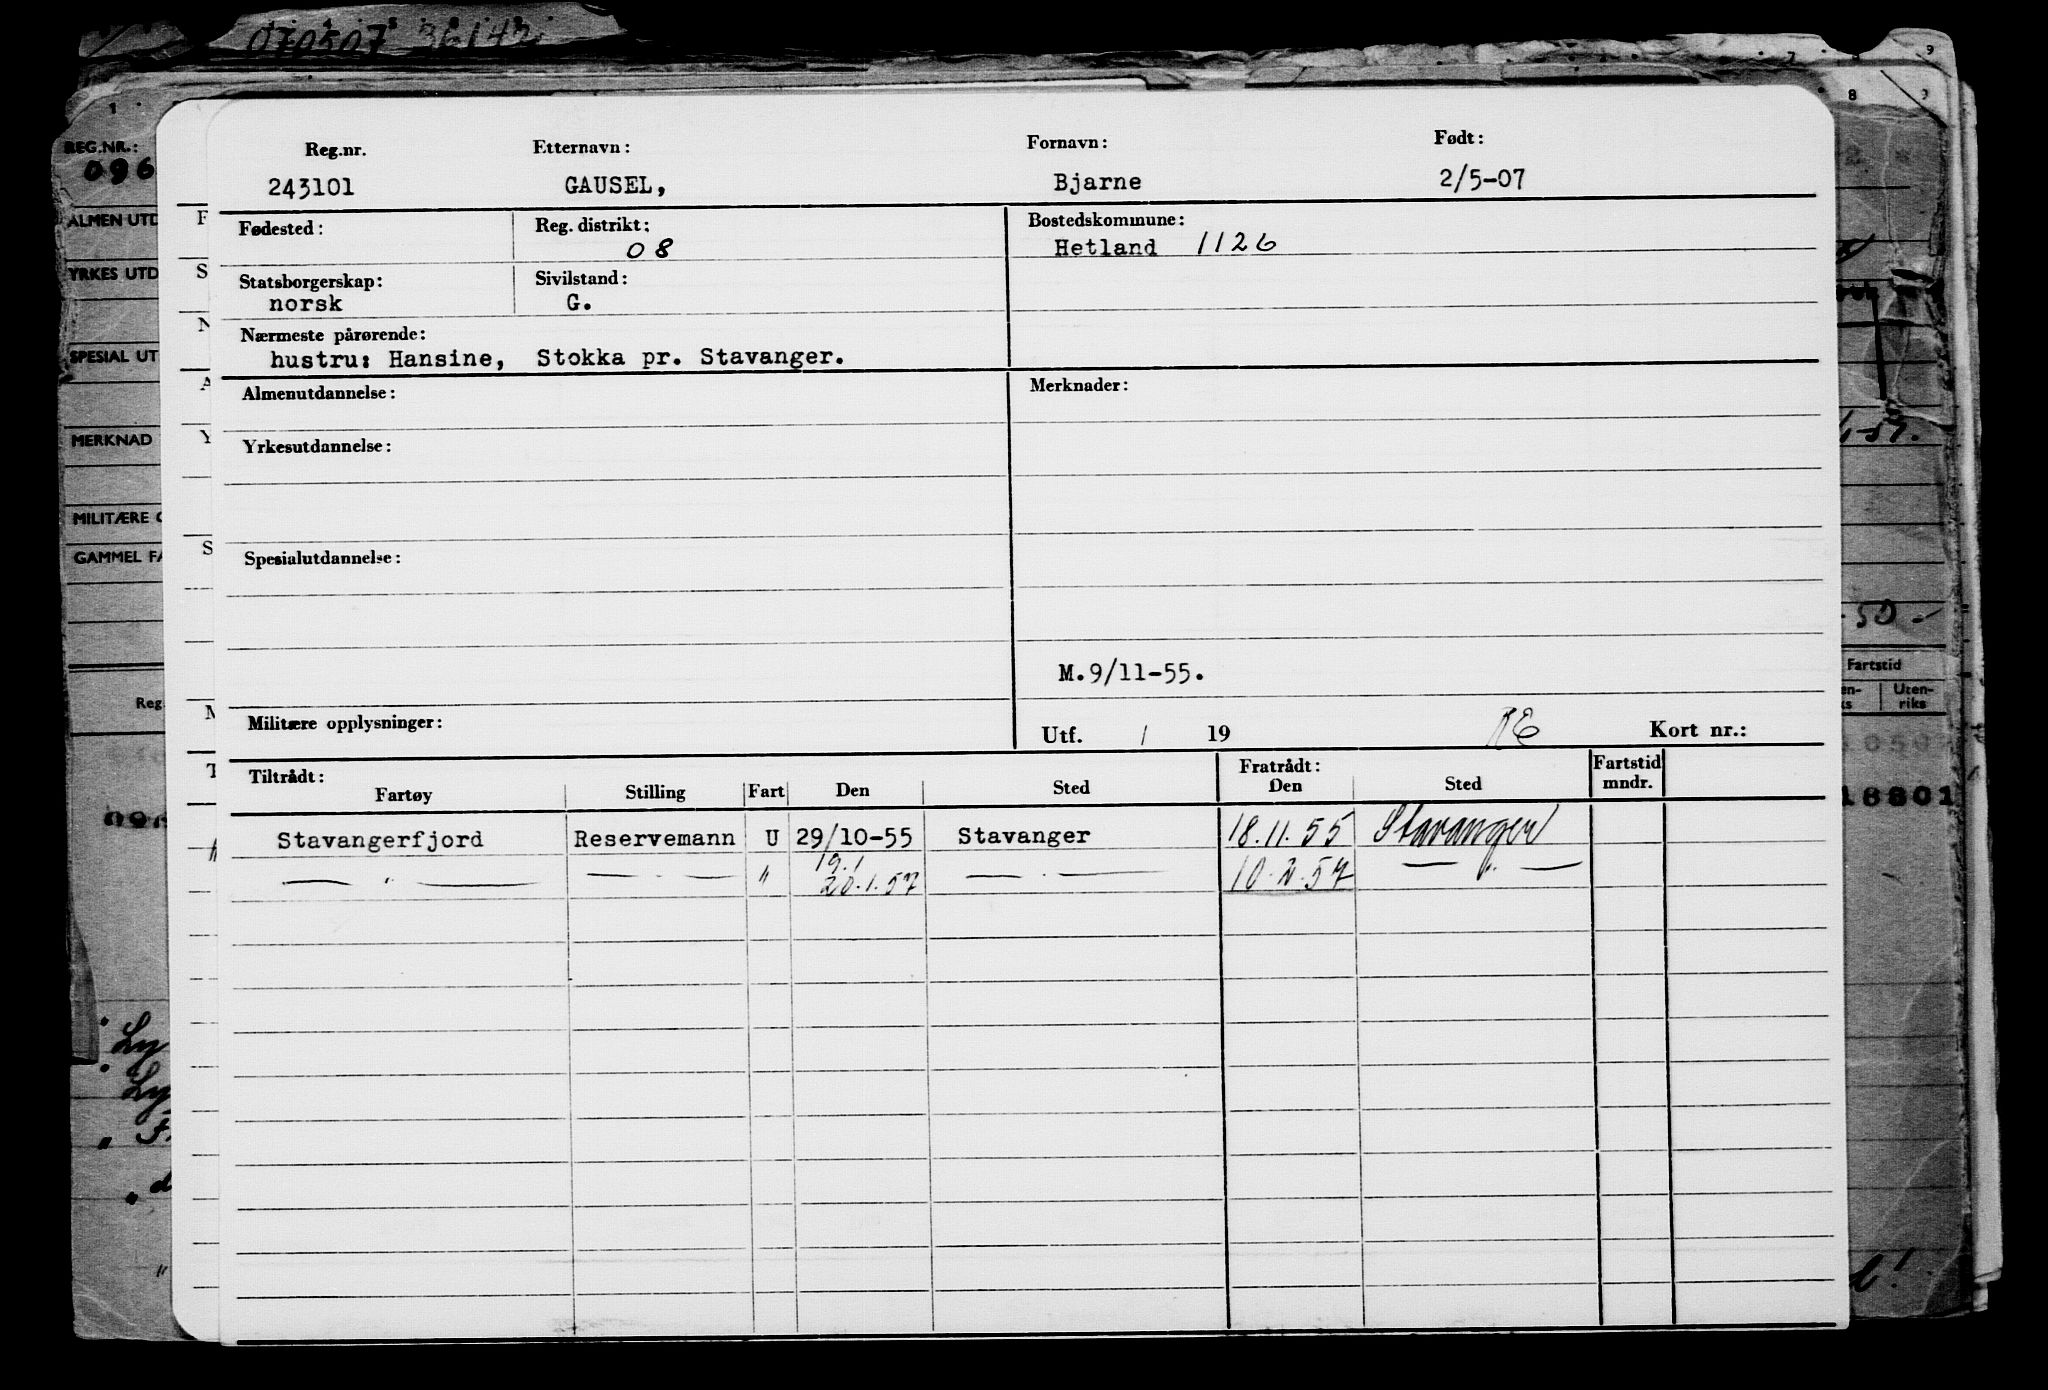 070507 36142
9
1
8
9
REG.NR.:
096
ALMEN UTD
YRKES UTD
SPESIAL UT
MERKNAD
MILITÆRE O
GAMMEL FA
Reg.
Reg.nr. Etternavn: Fornavn: Født:
243101 GAUSEL, Bjarne 2/5-07
Fødested: Reg. distrikt: Bostedskommune:
08 Hetland 1126
Statsborgerskap: Sivilstand:
norsk G.
Nærmeste pårørende:
hustru: Hansine, Stokka pr. Stavanger.
Almenutdannelse: Merknader:
Yrkesutdannelse:
Spesialutdannelse:
M.9/11-55.
Militære opplysninger: Utf. / 19 Kort nr.:
Tiltrådt: Fratrådt: Fartstid
Fartøy Stilling Fart Den Sted Den Sted mndr.
Stavangerfjord Reservemann U 29/10-55 Stavanger 18.11.55 Stavanger
19.1
— " — — " — " 20.1.57 — " — 10.2.57 — " —
F
S
N
A
Y
S
M
T
50
Fartstid
en-
ks
Uten-
riks
16801
Ly
Ly